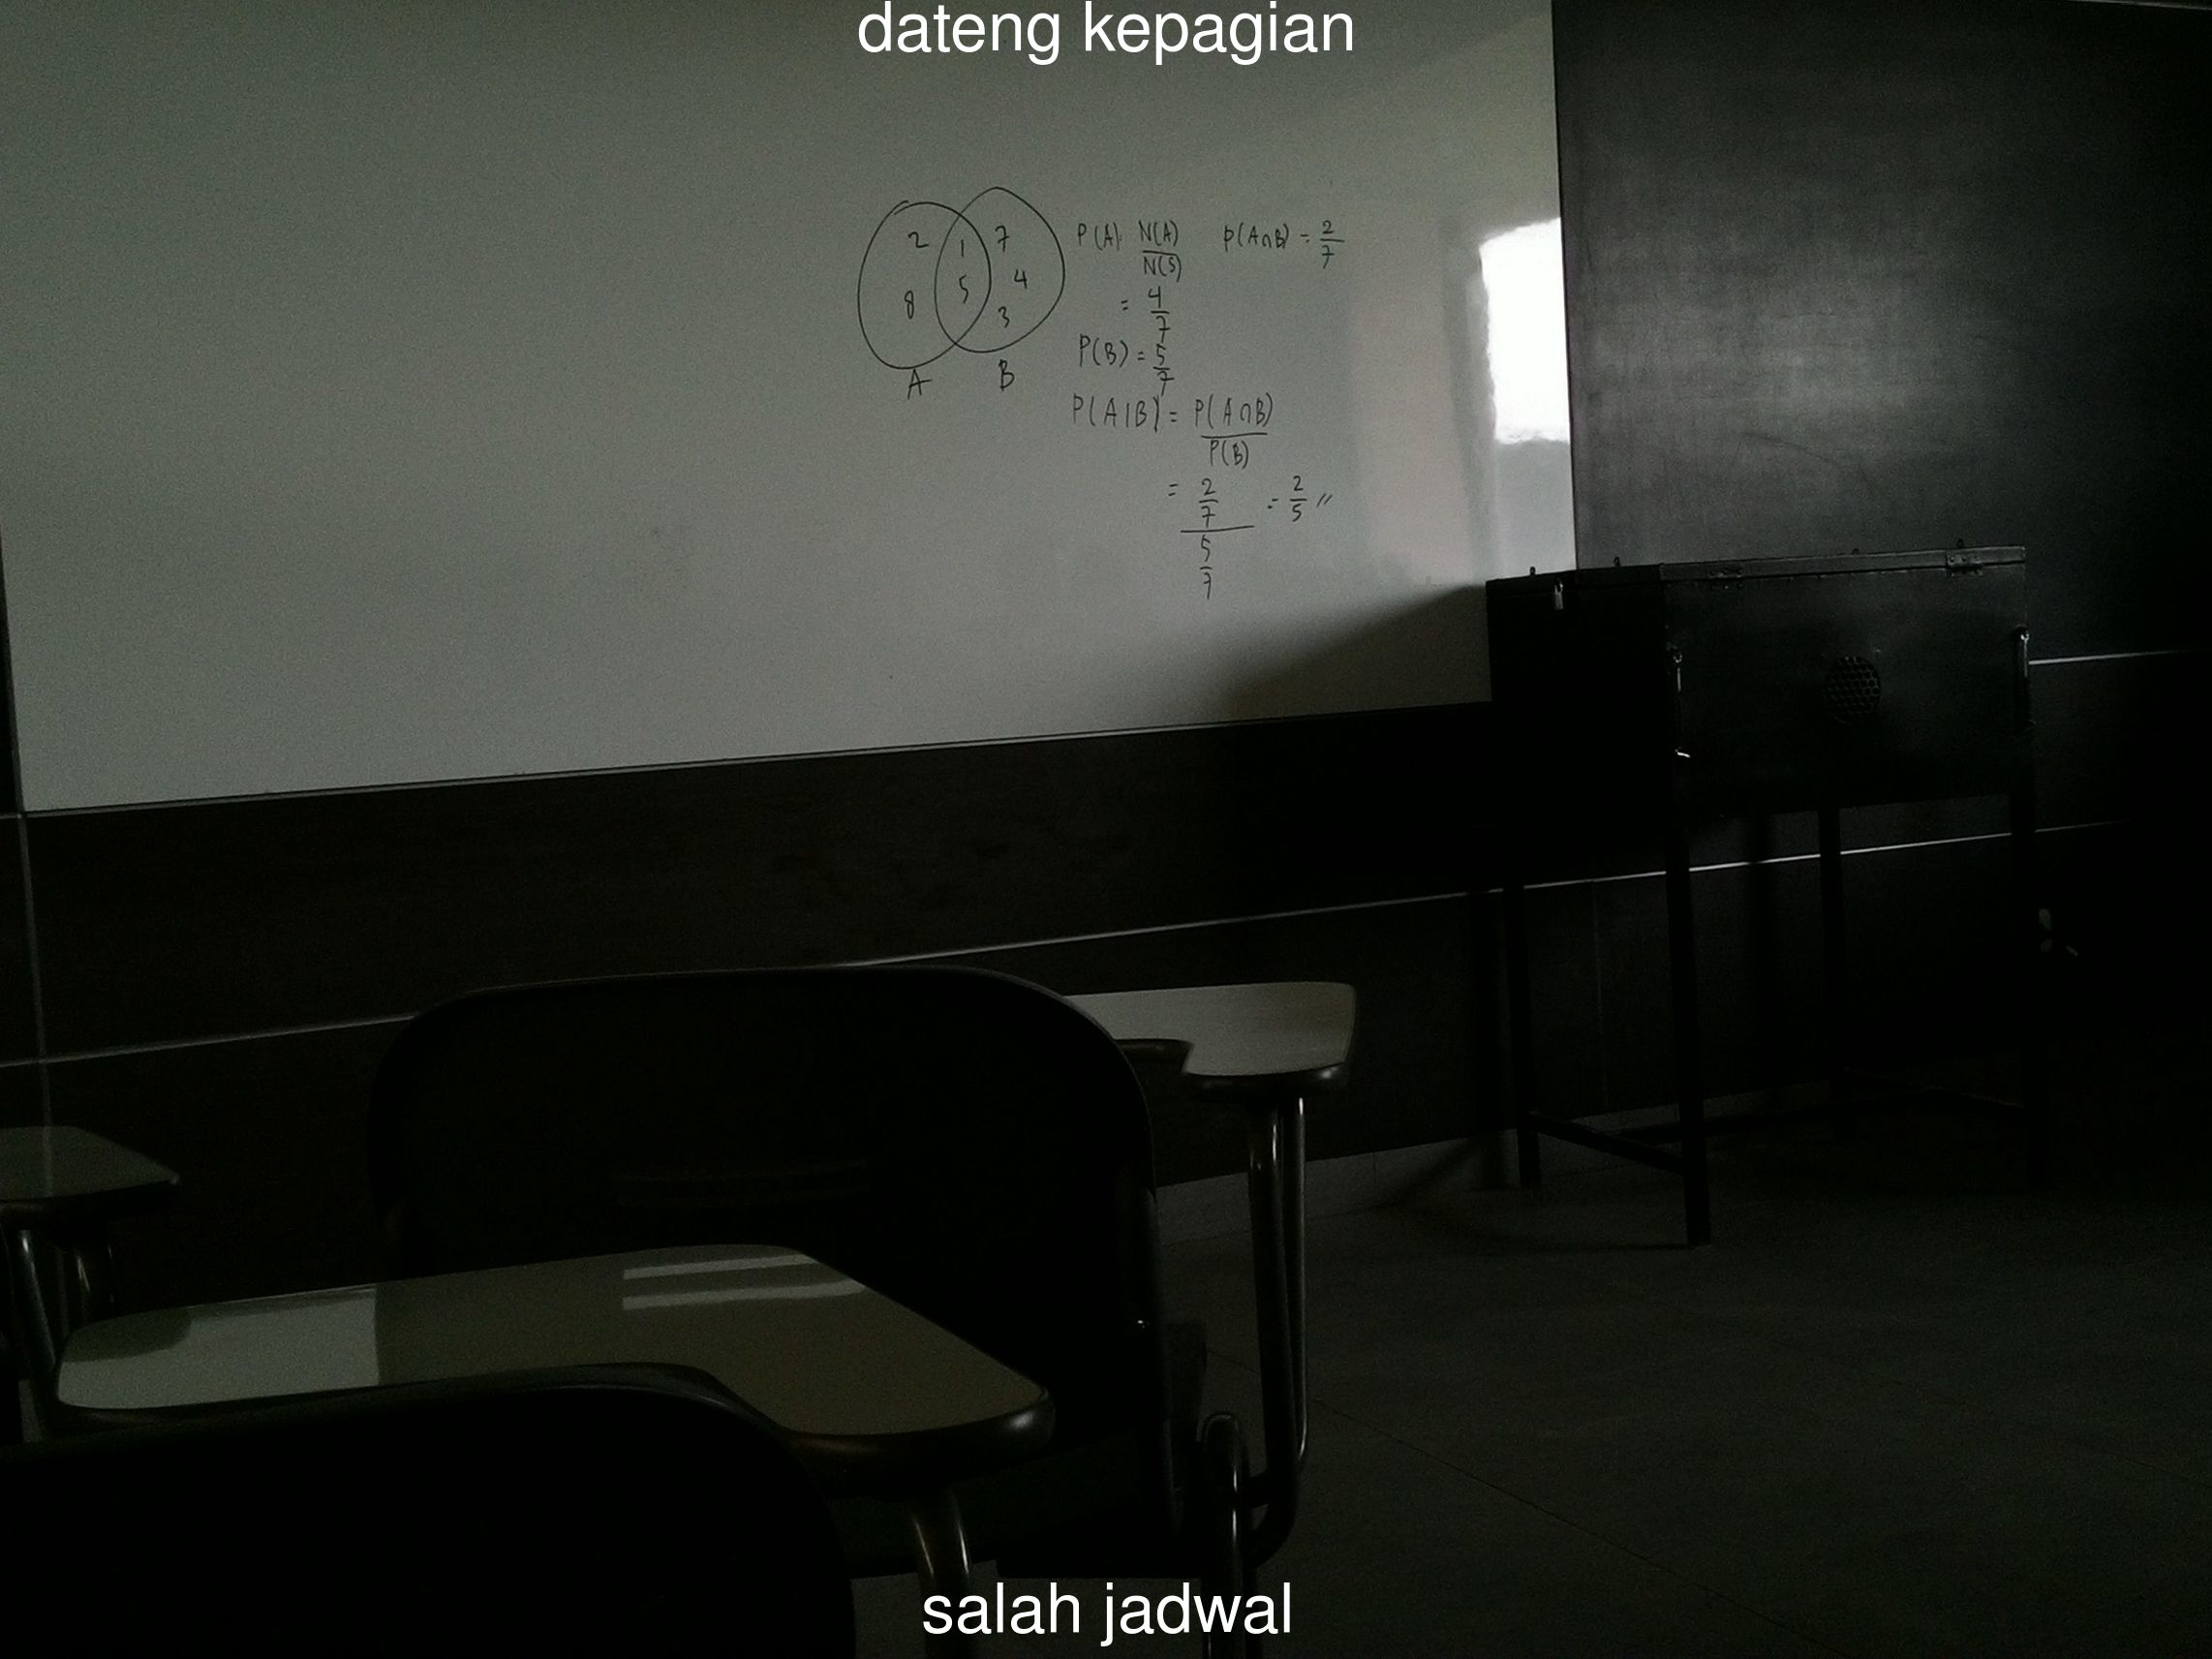 dateng kepagian
2 1 7
8 5 4
3
A B
P(A) N(A) P(A∩B) = 2
N(S) 7
= 4
7
P(B) = 5
7
P(A|B) = P(A∩B)
P(B)
= 2 = 2 //
7 5
5
7
salah jadwal